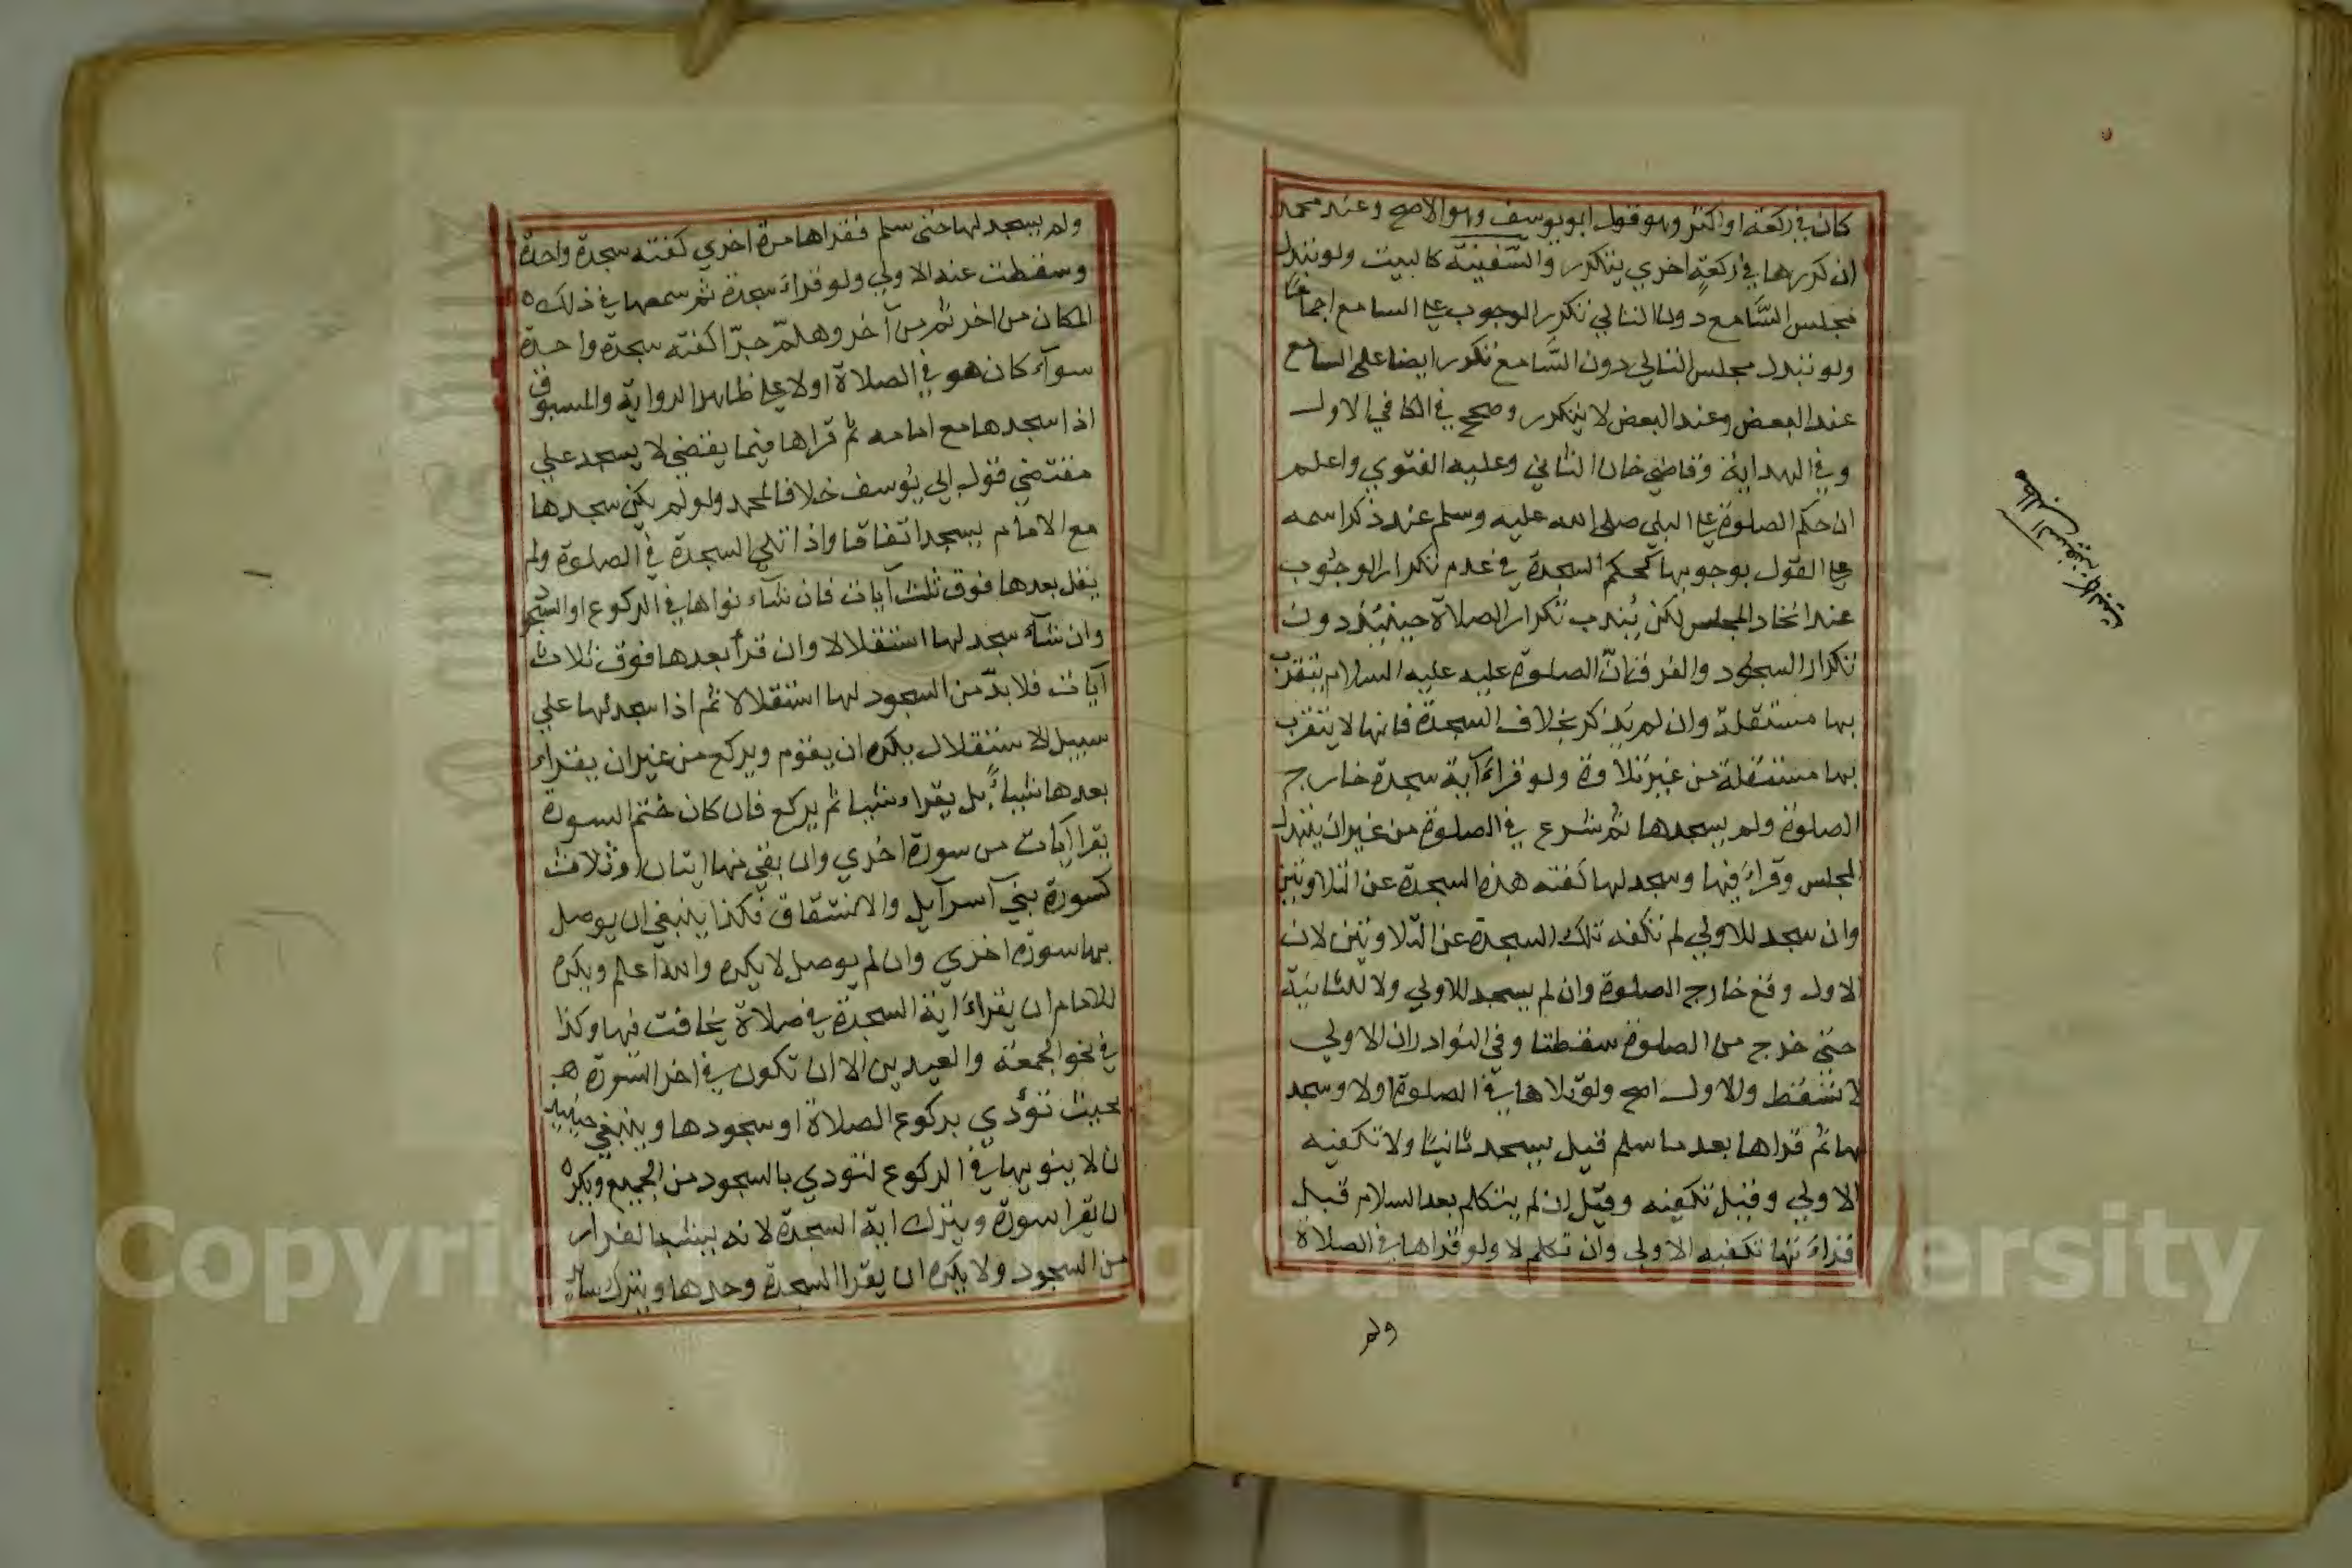 كان في ركعة او اكثر وهو قول ابو يوسف وهو الاصح وعند محمد
ان كررها في ركعة اخري يتكرر والسّفينة كالبيت ولو تبدل
مجلس السَّامع دون التالي تكرر الوجوب علي السامع اجماعًا
ولو تبدل مجلس التالي دون السَّامع تكرر ايضا علي السامع
عند البعض وعند البعض لا يتكرر وصحح في الكافي الاول
وفي الهداية وقاضي خان الثاني وعليه الفتوي واعلم
ان حكم الصلوة علي النبي صلى الله عليه وسلم عند ذكر اسمه
علي القول بوجوبها كحكم السجدة في عدم تكرار الوجوب
عند اتحاد المجلس لكن يُندب تكرار الصلاة حينئذ دون
تكرار السجود والفرق انّ الصلوة عليه عليه السلام يتقرب
بها مستقلة وان لم يذكر بخلاف السجدة فانها لا يتقرب
بها مستقلة من غير تلاوة ولو قراءَ آية سجدة خارج
الصلوة ولم يسجدها ثم شرع في الصلوة من غير ان يتبدل
المجلس وقراءَ فيها وسجد لها كفته هذه السجدة عن التلاوتين
وان سجد للاولي لم تكفه تلك السجدة عن التلاوتين لان
الاول وقع خارج الصلوة وان لم يسجد للاولي ولا للثانية
حتي خرج من الصلوة سقطتا وفي النوادر ان الاولي
لا تسقط والاول اصح ولو تلاها في الصلوة اولا وسجد
لها ثم قراها بعد ما سلم قيل يسجد ثانيًا ولا تكفيه
الاولي وقيل تكفيه وقيل ان لم يتكلم بعد السلام قبل
قراءَتها تكفيه الاولي وان تكلم لا ولو قراها في الصلاة
ولم
ولم يسجد لها حتى سلم فقراها مرة اخري كفته سجدة واحدة
وسقطت عنه الاولي ولو قراءَ سجدة ثم سمعها في ذلك
المكان من اخر ثم من آخر وهلمّ جرّا كفته سجدة واحدة
سوآء كان هو في الصلاة اولا علي ظاهر الرواية والمسبوق
اذا سجدها مع امامه ثم قراها فيما يقضي لا يسجد علي
مقتضي قول ابي يوسف خلافا لمحمد ولو لم يكن سجدها
مع الامام يسجد اتفاقا واذا تلي السجدة في الصلوة ولم
يقل بعدها فوق ثلث آيات فان شآء نواها في الركوع او السجود
وان شآء سجد لها استقلالا وان قرأ بعدها فوق ثلاث
آيات فلا بدّ من السجود لها استقلالا ثم اذا سجد لها علي
سبيل الاستقلال يكره ان يقوم ويركع من غير ان يقراء
بعدها شيأ بل يقراء شيبا ثم يركع فان كان ختم السورة
يقرا آيات من سورة اخري وان بقي منها ايتان او ثلاث
كسورة بني آسرآيل والانشقاق فكذا ينبغي ان يوصل
بها سورة اخري وان لم يوصل لا يكره والله اعلم ويكره
للامام ان يقراءَ اية السجدة في صلاة يخافت فيها وكذا
في نحو الجمعة والعيدين الا ان تكون في اخر السّورة
بحيث تؤدي بركوع الصلاة او سجودها وينبغي حينئيد
ان لا ينويها في الركوع لتودي بالسجود من الجميع ويكره
ان يقرا سورة ويترك اية السجدة لانه يشبه الفرار
من السجود ولا يكره ان يقرا السجدة وحدها ويترك سائر
Copyright © King Saud University